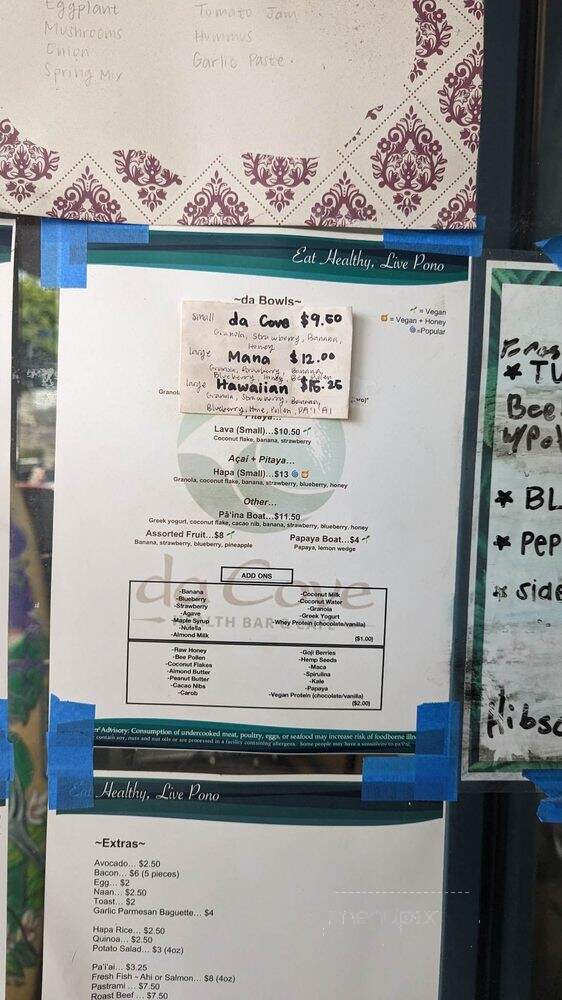 Eggplant
Mushrooms
Onion
Spring Mix
Tomato Jam
Hummus
Garlic Paste
Eat Healthy, Live Pono
~da Bowls~
= Vegan
= Vegan + Honey
=Popular
small da Cove $9.50
Granola, Strawberry, Banana,
Honey
large Mana $12.00
Granola, Strawberry, Banana,
Blueberry, Honey, Bee Pollen
large Hawaiian $15.25
Granola, Strawberry, Banana,
Blueberry, Hone, Pollen, PA'I'AI
Pitaya...
Lava (Small)...$10.50
Coconut flake, banana, strawberry
Açai + Pitaya...
Hapa (Small)...$13
Granola, coconut flake, banana, strawberry, blueberry, honey
Other...
Pā'ina Boat...$11.50
Greek yogurt, coconut flake, cacao nib, banana, strawberry, blueberry, honey
Assorted Fruit...$8
Banana, strawberry, blueberry, pineapple
Papaya Boat...$4
Papaya, lemon wedge
da Cove
HEALTH BAR & CAFE
ADD ONS
-Banana
-Blueberry
-Strawberry
-Agave
-Maple Syrup
-Nutella
-Almond Milk
-Coconut Milk
-Coconut Water
-Granola
-Greek Yogurt
-Whey Protein (chocolate/vanilla)
($1.00)
-Raw Honey
-Bee Pollen
-Coconut Flakes
-Almond Butter
-Peanut Butter
-Cacao Nibs
-Carob
-Goji Berries
-Hemp Seeds
-Maca
-Spirulina
-Kale
-Papaya
-Vegan Protein (chocolate/vanilla)
($2.00)
Advisory: Consumption of undercooked meat, poultry, eggs, or seafood may increase risk of foodborne illn
contain soy, nuts and nut oils or are processed in a facility containing allergens. Some people may have a sensitivity to pa'i'ai,
Eat Healthy, Live Pono
~Extras~
Avocado... $2.50
Bacon... $6 (5 pieces)
Egg... $2
Naan... $2.50
Toast... $2
Garlic Parmesan Baguette... $4
Hapa Rice... $2.50
Quinoa... $2.50
Potato Salad... $3 (4oz)
Pa'i'ai... $3.25
Fresh Fish ~ Ahi or Salmon... $8 (4oz)
Pastrami ... $7.50
Roast Beef ... $7.50
* TU
Bee
w/Po
* BL
* Pep
* side
Hibsc
menupix